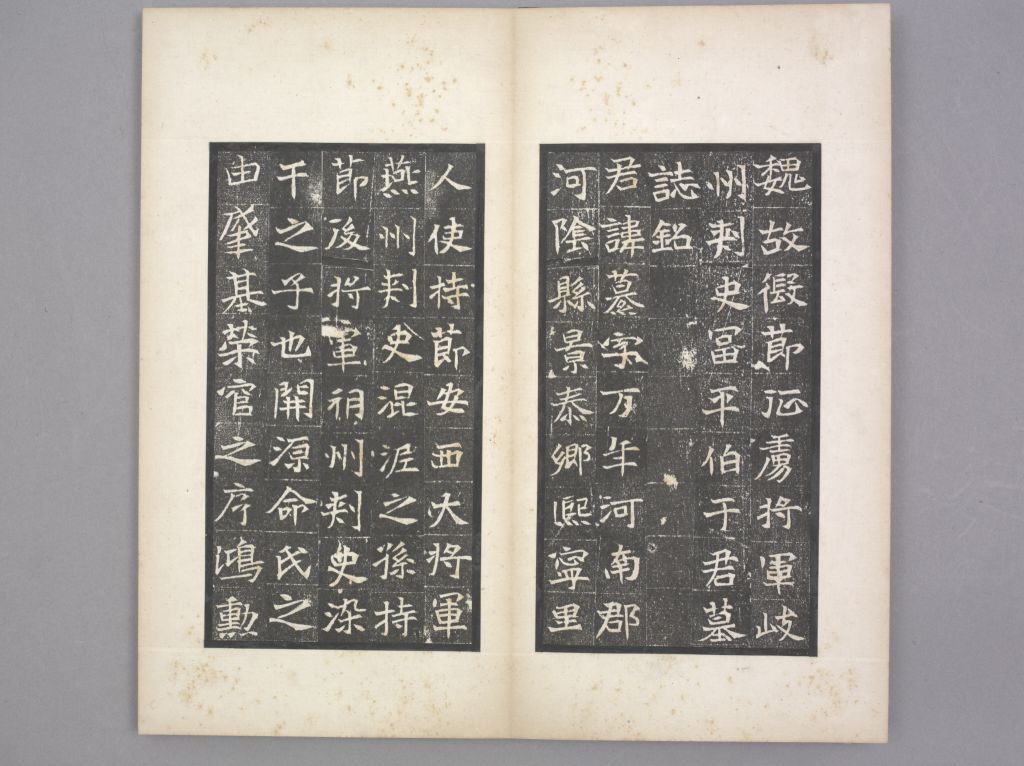 魏故假節征虜將軍岐
州刾史冨平伯于君墓
誌銘
君諱纂字万年河南郡
河陰縣景泰鄉熙寧里
人使持節安西大將軍
燕州刾史混泥之孫持
節後將軍朔州刾史染
干之子也開源命氏之
由肇基榮官之序鴻勳